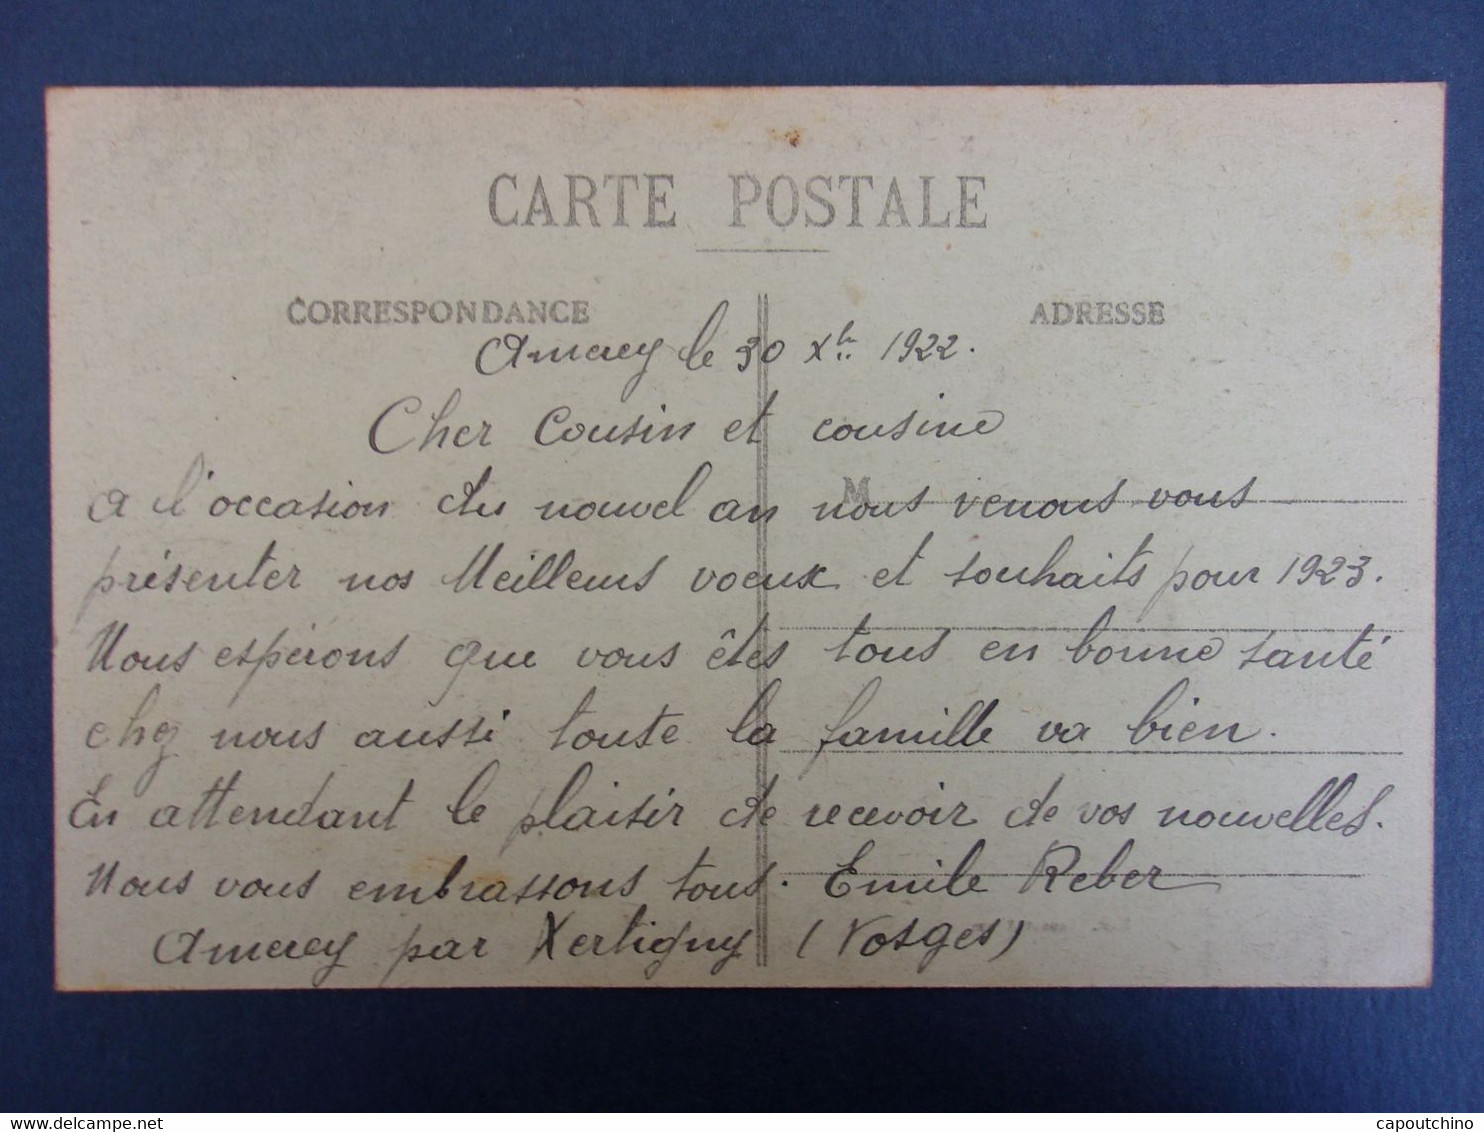 CARTE POSTALE
CORRESPONDANCE
ADRESSE
Amerey le 30 Xb 1922.
Cher Cousin et cousine
M
a l'occasion du nouvel an nous venons vous
présenter nos Meilleurs voeux et souhaits pour 1923.
Nous espérons que vous êtes tous en bonne santé
chez nous aussi toute la famille va bien.
En attendant le plaisir de recevoir de vos nouvelles.
Nous vous embrassons tous. Emile Reber
Amerey par Xertigny (Vosges)
Delcampe.net
capoutchino